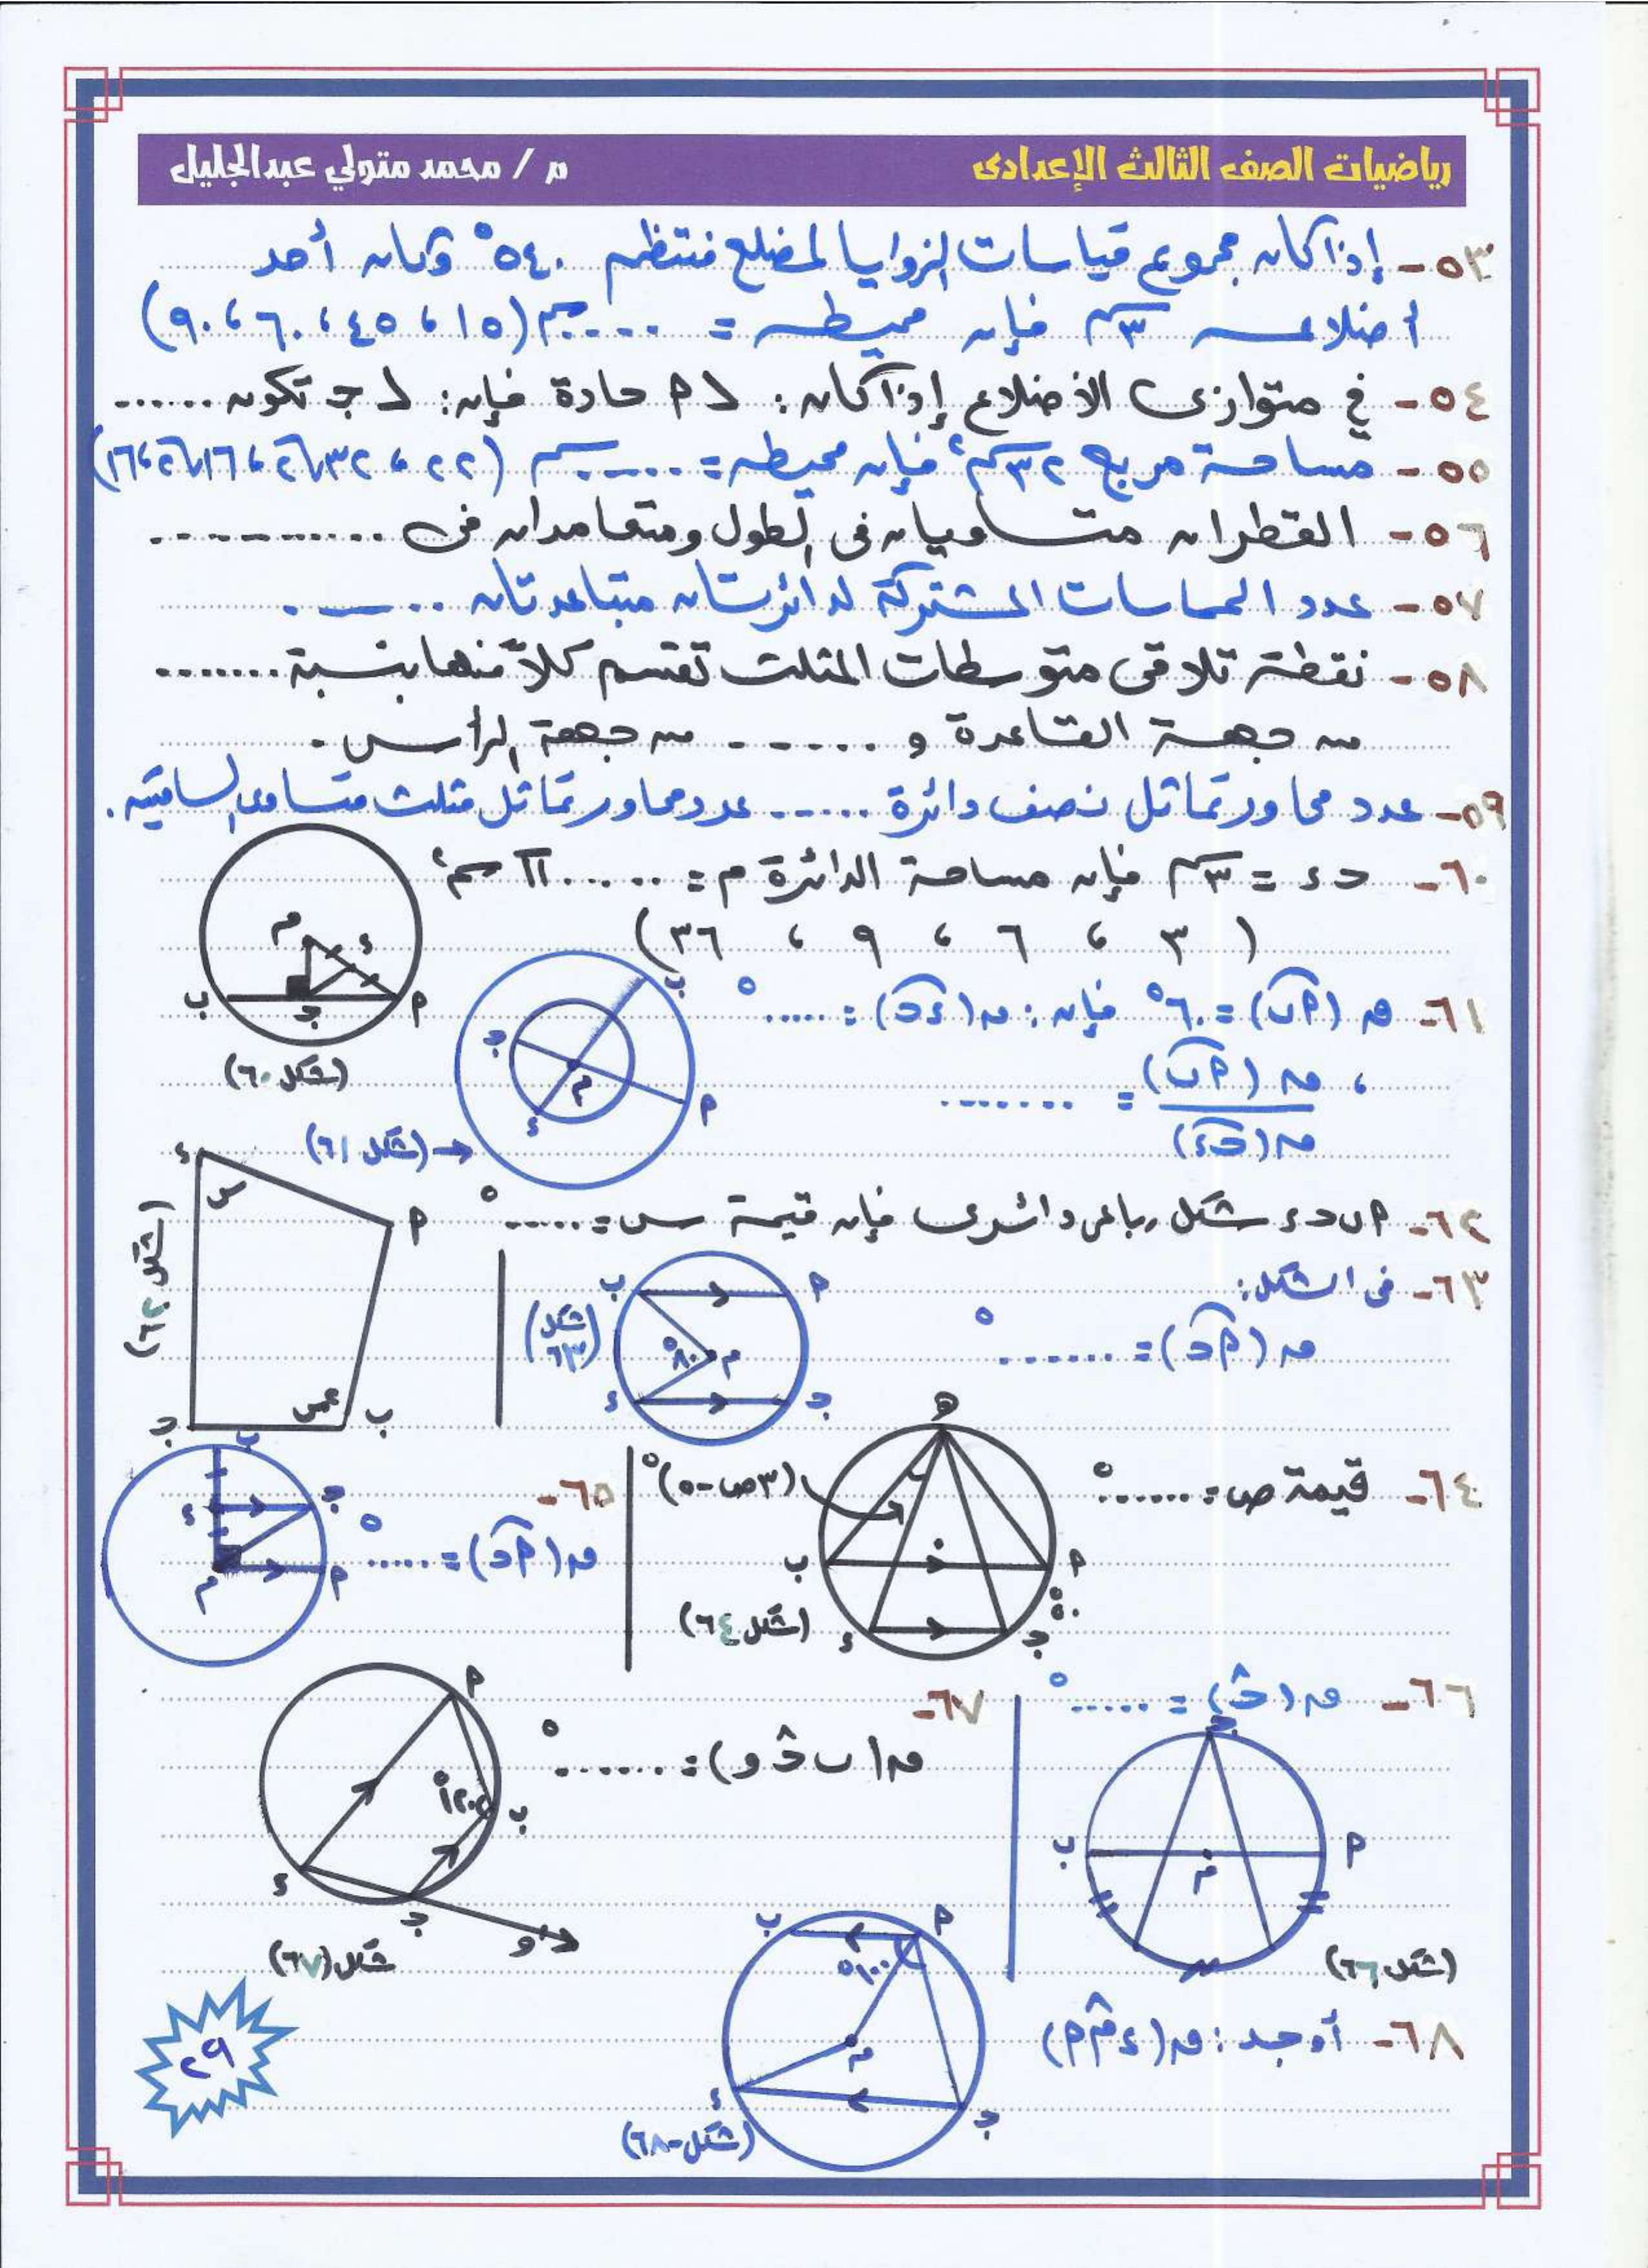 رياضيات الصف الثالث الإعدادى
م / محمد متولي عبدالجليل
٥٣- إذا كان مجموع قياسات الزوايا لمضلع منتظم ٥٤٠° وكان أحد
أضلاعه ٣سم فإن محيطه = ...... سم (١٥ ، ٤٥ ، ٦٠ ، ٩٠)
٥٤- فى متوازى الأضلاع إذا كان: ∠ م حادة فإن: ∠ جـ تكون ......
٥٥- مساحة مربع ٣٢سم٢ فإن محيطه = ...... سم (٢٢ ، ٣٢√٢ ، ١٦√٢ ، ١٦)
٥٦- القطران متساويان فى الطول ومتعامدان فى ............
٥٧- عدد المماسات المشتركة لدائرتان متباعدتان ......
٥٨- نقطة تلاقى متوسطات المثلث تقسم كلاً منها بنسبة ........
من جهة القاعدة و ...... من جهة الرأس.
٥٩- عدد محاور تماثل نصف دائرة ...... عدد محاور تماثل مثلث متساوى الساقين.
٦٠- حـ ء = ٣سم فإن مساحة الدائرة م = ...... π سم٢
( ٣ ، ٦ ، ٩ ، ٣٦ )
م
ء
ب
جـ
م
(شكل ٦٠)
٦١- ق (م ب) = ٦٠° فإن: ق (ء حـ) = ......°
، ق (م ب) = ........
ق (حـ ء)
ب
جـ
م
م
ء
(شكل ٦١) ←
٦٢- م ب حـ ء شكل رباعى دائرى فإن قيمة س = ......°
ء
س
م
٤س
ب
جـ
(شكل ٦٢)
٦٣- فى الشكل:
ق (م حـ) = ........°
ب
م
٨٠°
م
ء
جـ
(شكل ٦٣)
٦٤- قيمة ص = .......°
(٣ص-٥)°
هـ
ب
م
٥٠°
ء
جـ
(شكل ٦٤)
٦٥-
ق (م حـ) = ......°
ب
ء
جـ
م
م
٦٦- ق (حـ) = ......°
جـ
ب
م
م
(شكل ٦٦)
٦٧-
ق (ب حـ و) = ........°
م
١٢٠°
ب
ء
جـ
و
شكل (٦٧)
٦٨- أوجد: ق (ء م م)
ب
م
١٠٠°
م
ء
جـ
(شكل-٦٨)
٢٩